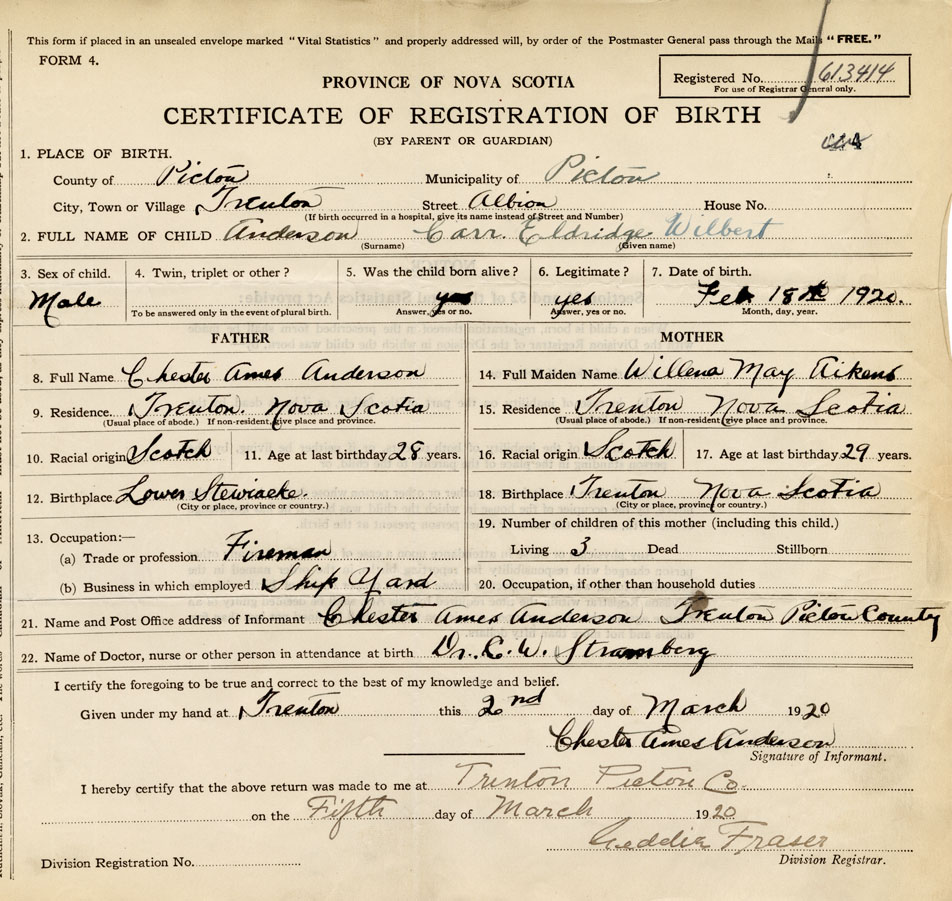 This form if placed in an unsealed envelope marked "Vital Statistics" and properly addressed will, by order of the Postmaster General pass through the Mails "FREE."
FORM 4.
Registered No. 613414
For use of Registrar General only.
PROVINCE OF NOVA SCOTIA
CERTIFICATE OF REGISTRATION OF BIRTH
(BY PARENT OR GUARDIAN)
1. PLACE OF BIRTH.
County of Picton Municipality of Picton
City, Town or Village Trenton Street Albion House No.
(If birth occurred in a hospital, give its name instead of Street and Number)
2. FULL NAME OF CHILD Anderson Carr Eldridge Wilbert
(Surname) (Given name)
3. Sex of child. 4. Twin, triplet or other? 5. Was the child born alive? 6. Legitimate? 7. Date of birth.
Male yes yes Feb. 18th 1920.
To be answered only in the event of plural birth. Answer, yes or no. Answer, yes or no. Month, day, year.
FATHER MOTHER
8. Full Name Chester Ames Anderson 14. Full Maiden Name Willena May Aikens
9. Residence. Trenton. Nova Scotia 15. Residence Trenton Nova Scotia
(Usual place of abode.) If non-resident, give place and province. (Usual place of abode.) If non-resident, give place and province.
10. Racial origin Scotch 11. Age at last birthday 28 years. 16. Racial origin Scotch 17. Age at last birthday 29 years.
12. Birthplace Lower Stewiacke. 18. Birthplace Trenton Nova Scotia
(City or place, province or country.) (City or place, province or country.)
19. Number of children of this mother (including this child.)
13. Occupation:—
(a) Trade or profession Fireman Living 3 Dead Stillborn
(b) Business in which employed Ship Yard 20. Occupation, if other than household duties
21. Name and Post Office address of Informant Chester Ames Anderson Trenton Picton County
22. Name of Doctor, nurse or other person in attendance at birth Dr. C. W. Stramberg
I certify the foregoing to be true and correct to the best of my knowledge and belief.
Given under my hand at Trenton this 2nd day of March 1920
Chester Ames Anderson
Signature of Informant.
I hereby certify that the above return was made to me at Trenton Picton Co.
on the Fifth day of March 1920
Geddie Fraser
Division Registration No. Division Registrar.